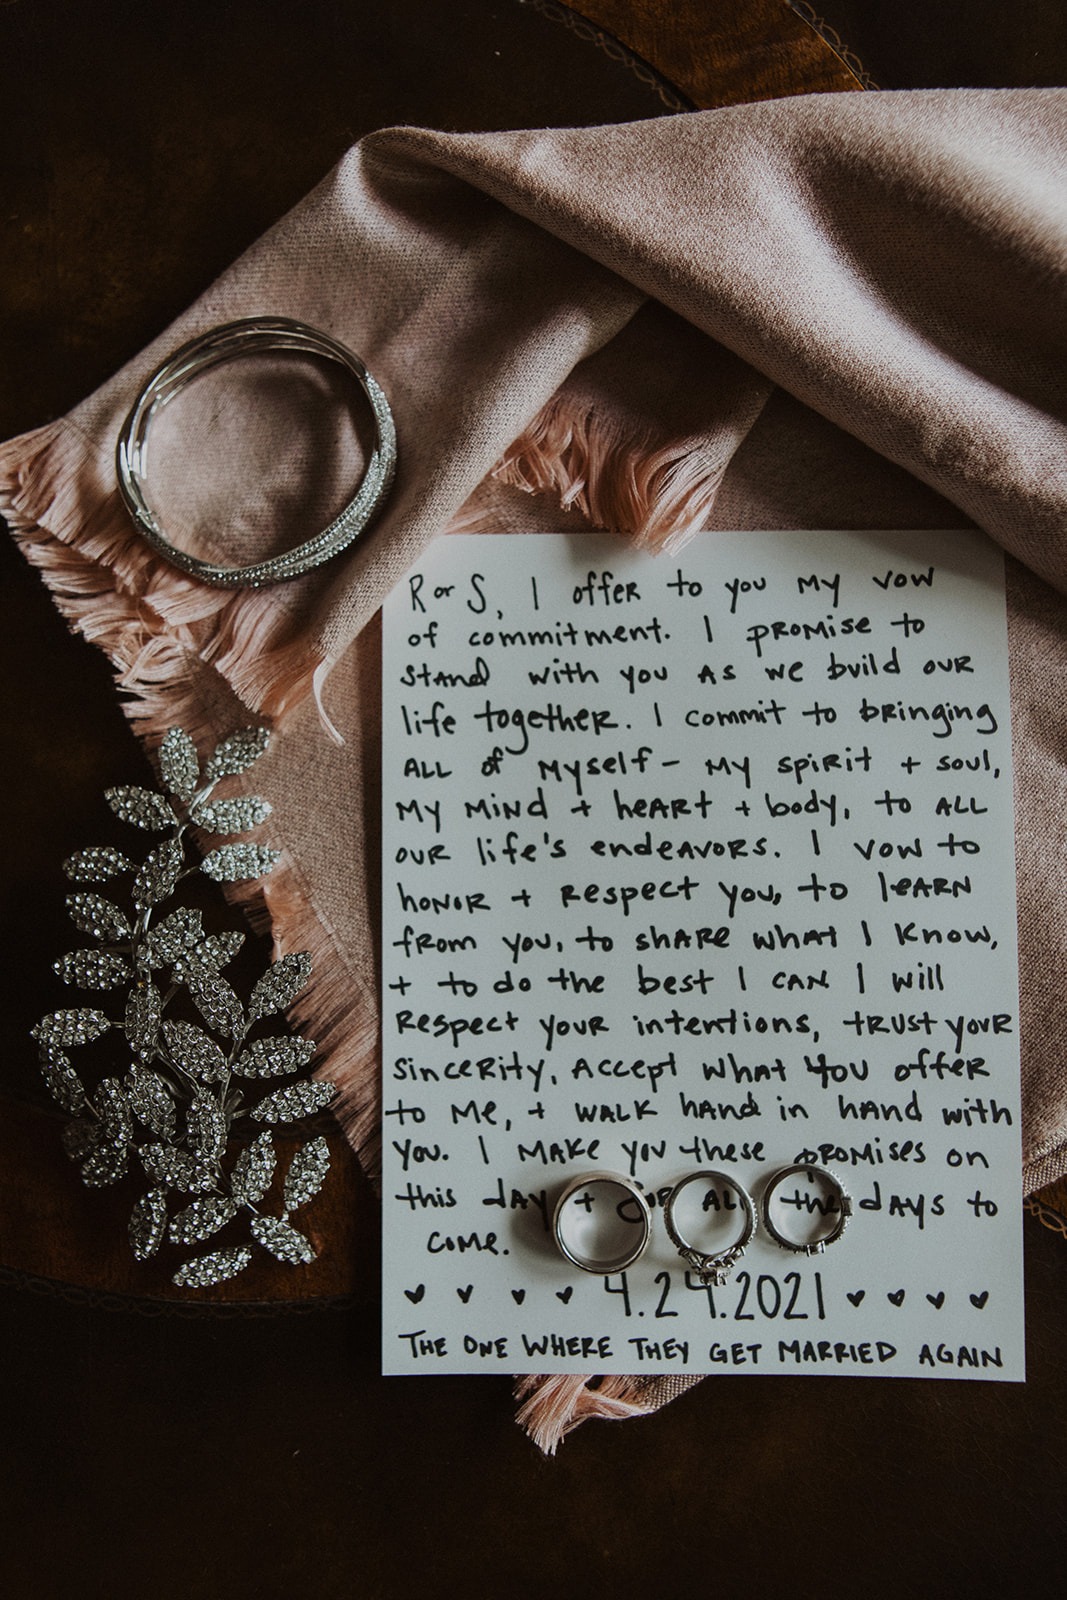 R or S, I offer to you my vow
of commitment. I promise to
stand with you as we build our
life together. I commit to bringing
all of myself - my spirit + soul,
my mind + heart + body, to all
our life's endeavors. I vow to
honor + respect you, to learn
from you, to share what I know,
+ to do the best I can I will
respect your intentions, trust your
sincerity, accept what you offer
to me, + walk hand in hand with
you. I make you these promises on
this day + for all the days to
come.
♥ ♥ ♥ ♥ 4.24.2021 ♥ ♥ ♥ ♥
THE ONE WHERE THEY GET MARRIED AGAIN